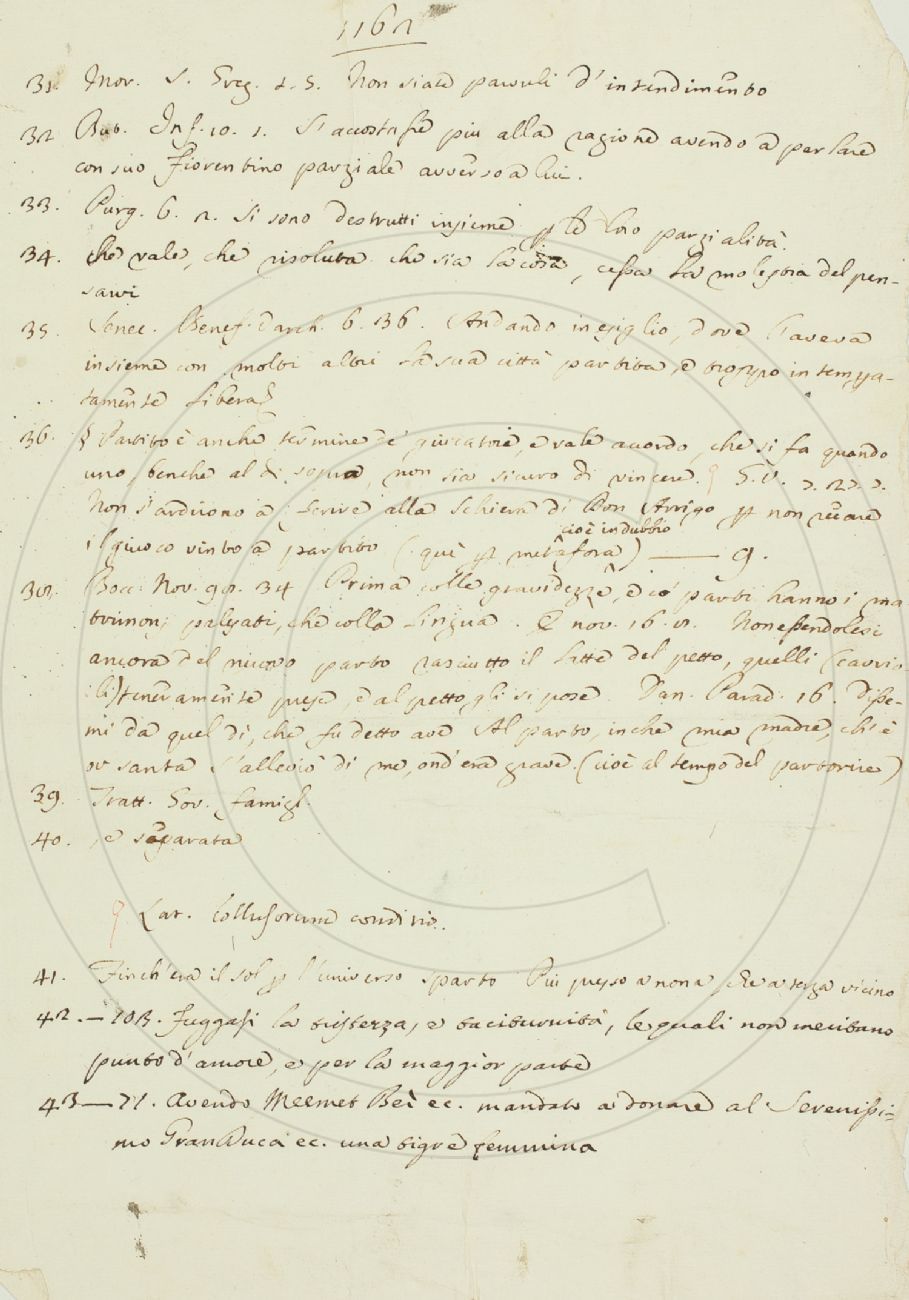 1162
31. Mor. S. Greg. 2. 5. Non siate parvuli d'intendimento
32 But. Inf. 10. 1. S'accostasse piu alla ragione avendo a parlare
con suo Fiorentino parziale avverso a lui.
33. Purg. 6. 2. Si sono destrutti insieme p le loro parzialità.
34. che vale, che risoluta che sia la cosa, cessa la molestia del pen-
sarvi
35. Senec. Benef. Varch. 6. 36. Andando in esiglio, dove l'aveva
insieme con molti altri la sua città partita, e troppo intempa-
tamente libera
36. Partito è anche termine de' giucatori, e vale accordo, che si fa quando
uno, benche al di sopra, non sia sicuro di vincere. G. V. 7. 27. 7.
Non s'ardirono a ferire alla schiera di Don Arrigo p non recare
il giuoco vinto a partito (quì p metafora) — 9.
cioè in dubbio
Bocc. Nov. 98. 34 Prima colle gravidezze, e co' parti hanno i ma
trimonj palesati, che colla lingua. E nov. 16. 8. Non essendolesi
ancora del nuovo parto rasciutto il latte del petto, quelli (cavrio-
li) teneramente prese, e al petto gli si pose Dan. Parad. 16. Disse-
mi da quel dì, che fu detto ave Al parto, in che mia madre, ch'è
or santa S'allevió di me, ond'era grave. (cioè al tempo del partorire)
39. Tratt. Gov. famigl.
40. , e separata
Lat. Collusorum conditio.
41. Finch'era il sol p l'universo sparto Piu presso a nona che a terza vicino
42. — 103. Fuggasi la tristezza, e taciturnità, le quali non meritano
punto d'amore, e per la maggior parte
43 — 71. Avendo Meemet Bei ec. mandato a donare al Serenissi-
mo Gran Duca ec. una tigre femmina